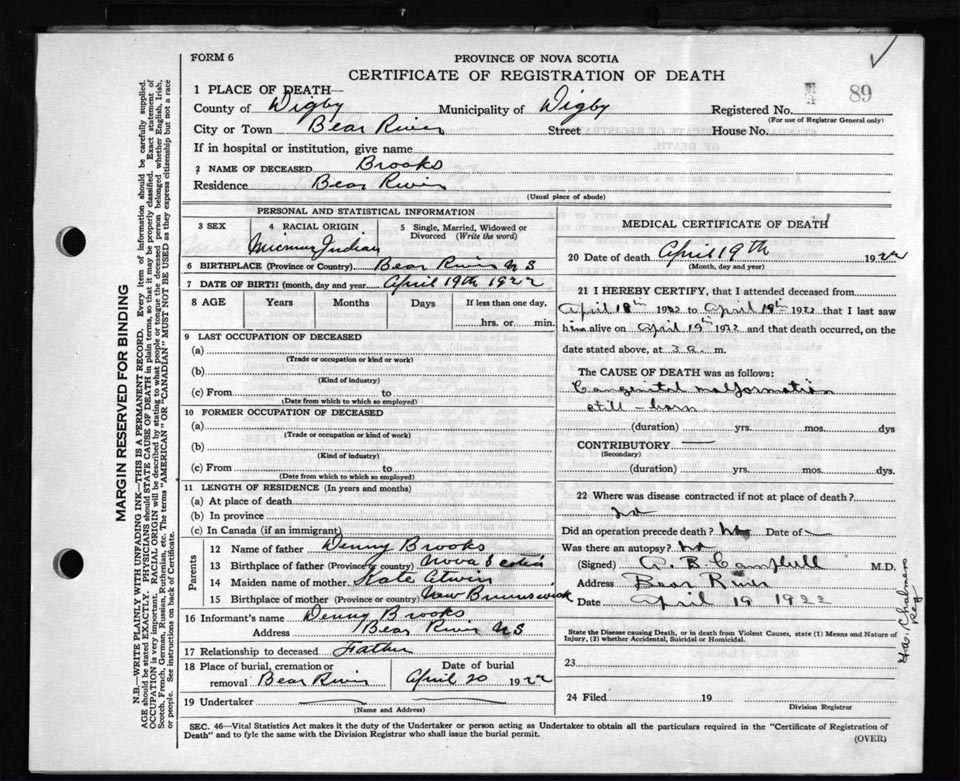 FORM 6
PROVINCE OF NOVA SCOTIA
CERTIFICATE OF REGISTRATION OF DEATH
89
1 PLACE OF DEATH—
County of Digby Municipality of Digby Registered No.
(For use of Registrar General only)
City or Town Bear River Street House No.
If in hospital or institution, give name
2 NAME OF DECEASED Brooks
Residence Bear River
(Usual place of abode)
PERSONAL AND STATISTICAL INFORMATION
3 SEX 4 RACIAL ORIGIN 5 Single, Married, Widowed or
Divorced (Write the word)
Micmac Indian
6 BIRTHPLACE (Province or Country) Bear River N S
7 DATE OF BIRTH (month, day and year) April 19th 1922
8 AGE Years Months Days If less than one day,
hrs. or min.
9 LAST OCCUPATION OF DECEASED
(a)
(Trade or occupation or kind or work)
(b)
(Kind of industry)
(c) From to
(Date from which to which so employed)
10 FORMER OCCUPATION OF DECEASED
(a)
(Trade or occupation or kind of work)
(b)
(Kind of industry)
(c) From to
(Date from which to which so employed)
11 LENGTH OF RESIDENCE (In years and months)
(a) At place of death
(b) In province
(c) In Canada (if an immigrant)
Parents
12 Name of father Denny Brooks
13 Birthplace of father (Province or country) Nova Scotia
14 Maiden name of mother Kate Atwin
15 Birthplace of mother (Province or country) New Brunswick
16 Informant's name Denny Brooks
Address Bear River N S
17 Relationship to deceased Father
18 Place of burial, cremation or Date of burial
removal Bear River April 20 1922
19 Undertaker
(Name and Address)
MEDICAL CERTIFICATE OF DEATH
20 Date of death April 19th 1922
(Month, day and year)
21 I HEREBY CERTIFY, that I attended deceased from
April 19th 1922 to April 19th 1922 that I last saw
him alive on April 19th 1922 and that death occurred, on the
date stated above, at 3 a. m.
The CAUSE OF DEATH was as follows:
Congenital malformation
still-born
(duration) yrs. mos. dys
CONTRIBUTORY —
(Secondary)
(duration) yrs. mos. dys.
22 Where was disease contracted if not at place of death?
no
Did an operation precede death? No Date of —
Was there an autopsy? No
(Signed) Campbell M.D.
Address Bear River
Date April 19 1922
State the Disease causing Death, or in death from Violent Causes, state (1) Means and Nature of
Injury, (2) whether Accidental, Suicidal or Homicidal.
23
24 Filed 19
Division Registrar
Chalmers
Reg
SEC. 46—Vital Statistics Act makes it the duty of the Undertaker or person acting as Undertaker to obtain all the particulars required in the "Certificate of Registration of
Death" and to fyle the same with the Division Registrar who shall issue the burial permit.
(OVER)
MARGIN RESERVED FOR BINDING
N.B.—WRITE PLAINLY WITH UNFADING INK—THIS IS A PERMANENT RECORD. Every item of information should be carefully supplied.
AGE should be stated EXACTLY. PHYSICIANS should STATE CAUSE OF DEATH in plain terms, so that it may be properly classified. Exact statement of
OCCUPATION is very important. RACIAL ORIGIN will be described by stating to what people or tongue the deceased person belonged whether English, Irish,
Scotch, French, German, Russian, Ruthenian, etc. The terms "AMERICAN" OR "CANADIAN" MUST NOT BE USED as they express citizenship but not a race
or people. See instructions on back of Certificate.